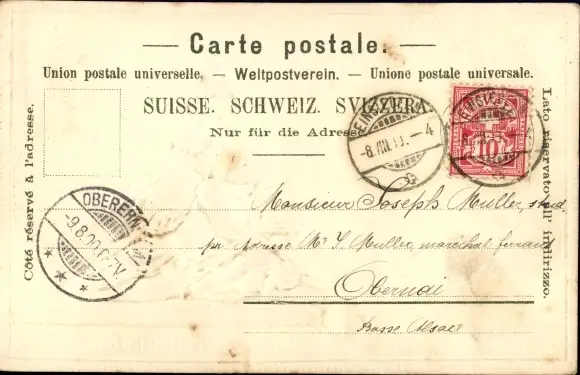 — Carte postale. —
Union postale universelle. — Weltpostverein. — Unione postale universale.
SUISSE. SCHWEIZ. SVIZZERA.
Nur für die Adresse
Côté réservé à l'adresse.
Lato riservato all' indirizzo.
-8.VIII. -4
10
OBEREHN
-9.8.00.6-7V.
Monsieur Joseph Muller, stud.
pr Adresse Mr J. Muller, maréchal ferrant
Obernai
Basse Alsace